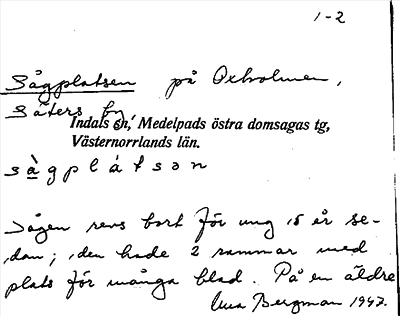 1-2
Sågplatsen på Oxholmen,
Säters by,
Indals sn, Medelpads östra domsagas tg,
Västernorrlands län.
sàgplátsən
Sågen revs bort för ung 15 år se-
dan; den hade 2 rammar med
plats för många blad. På en äldre
Bergman 1947.